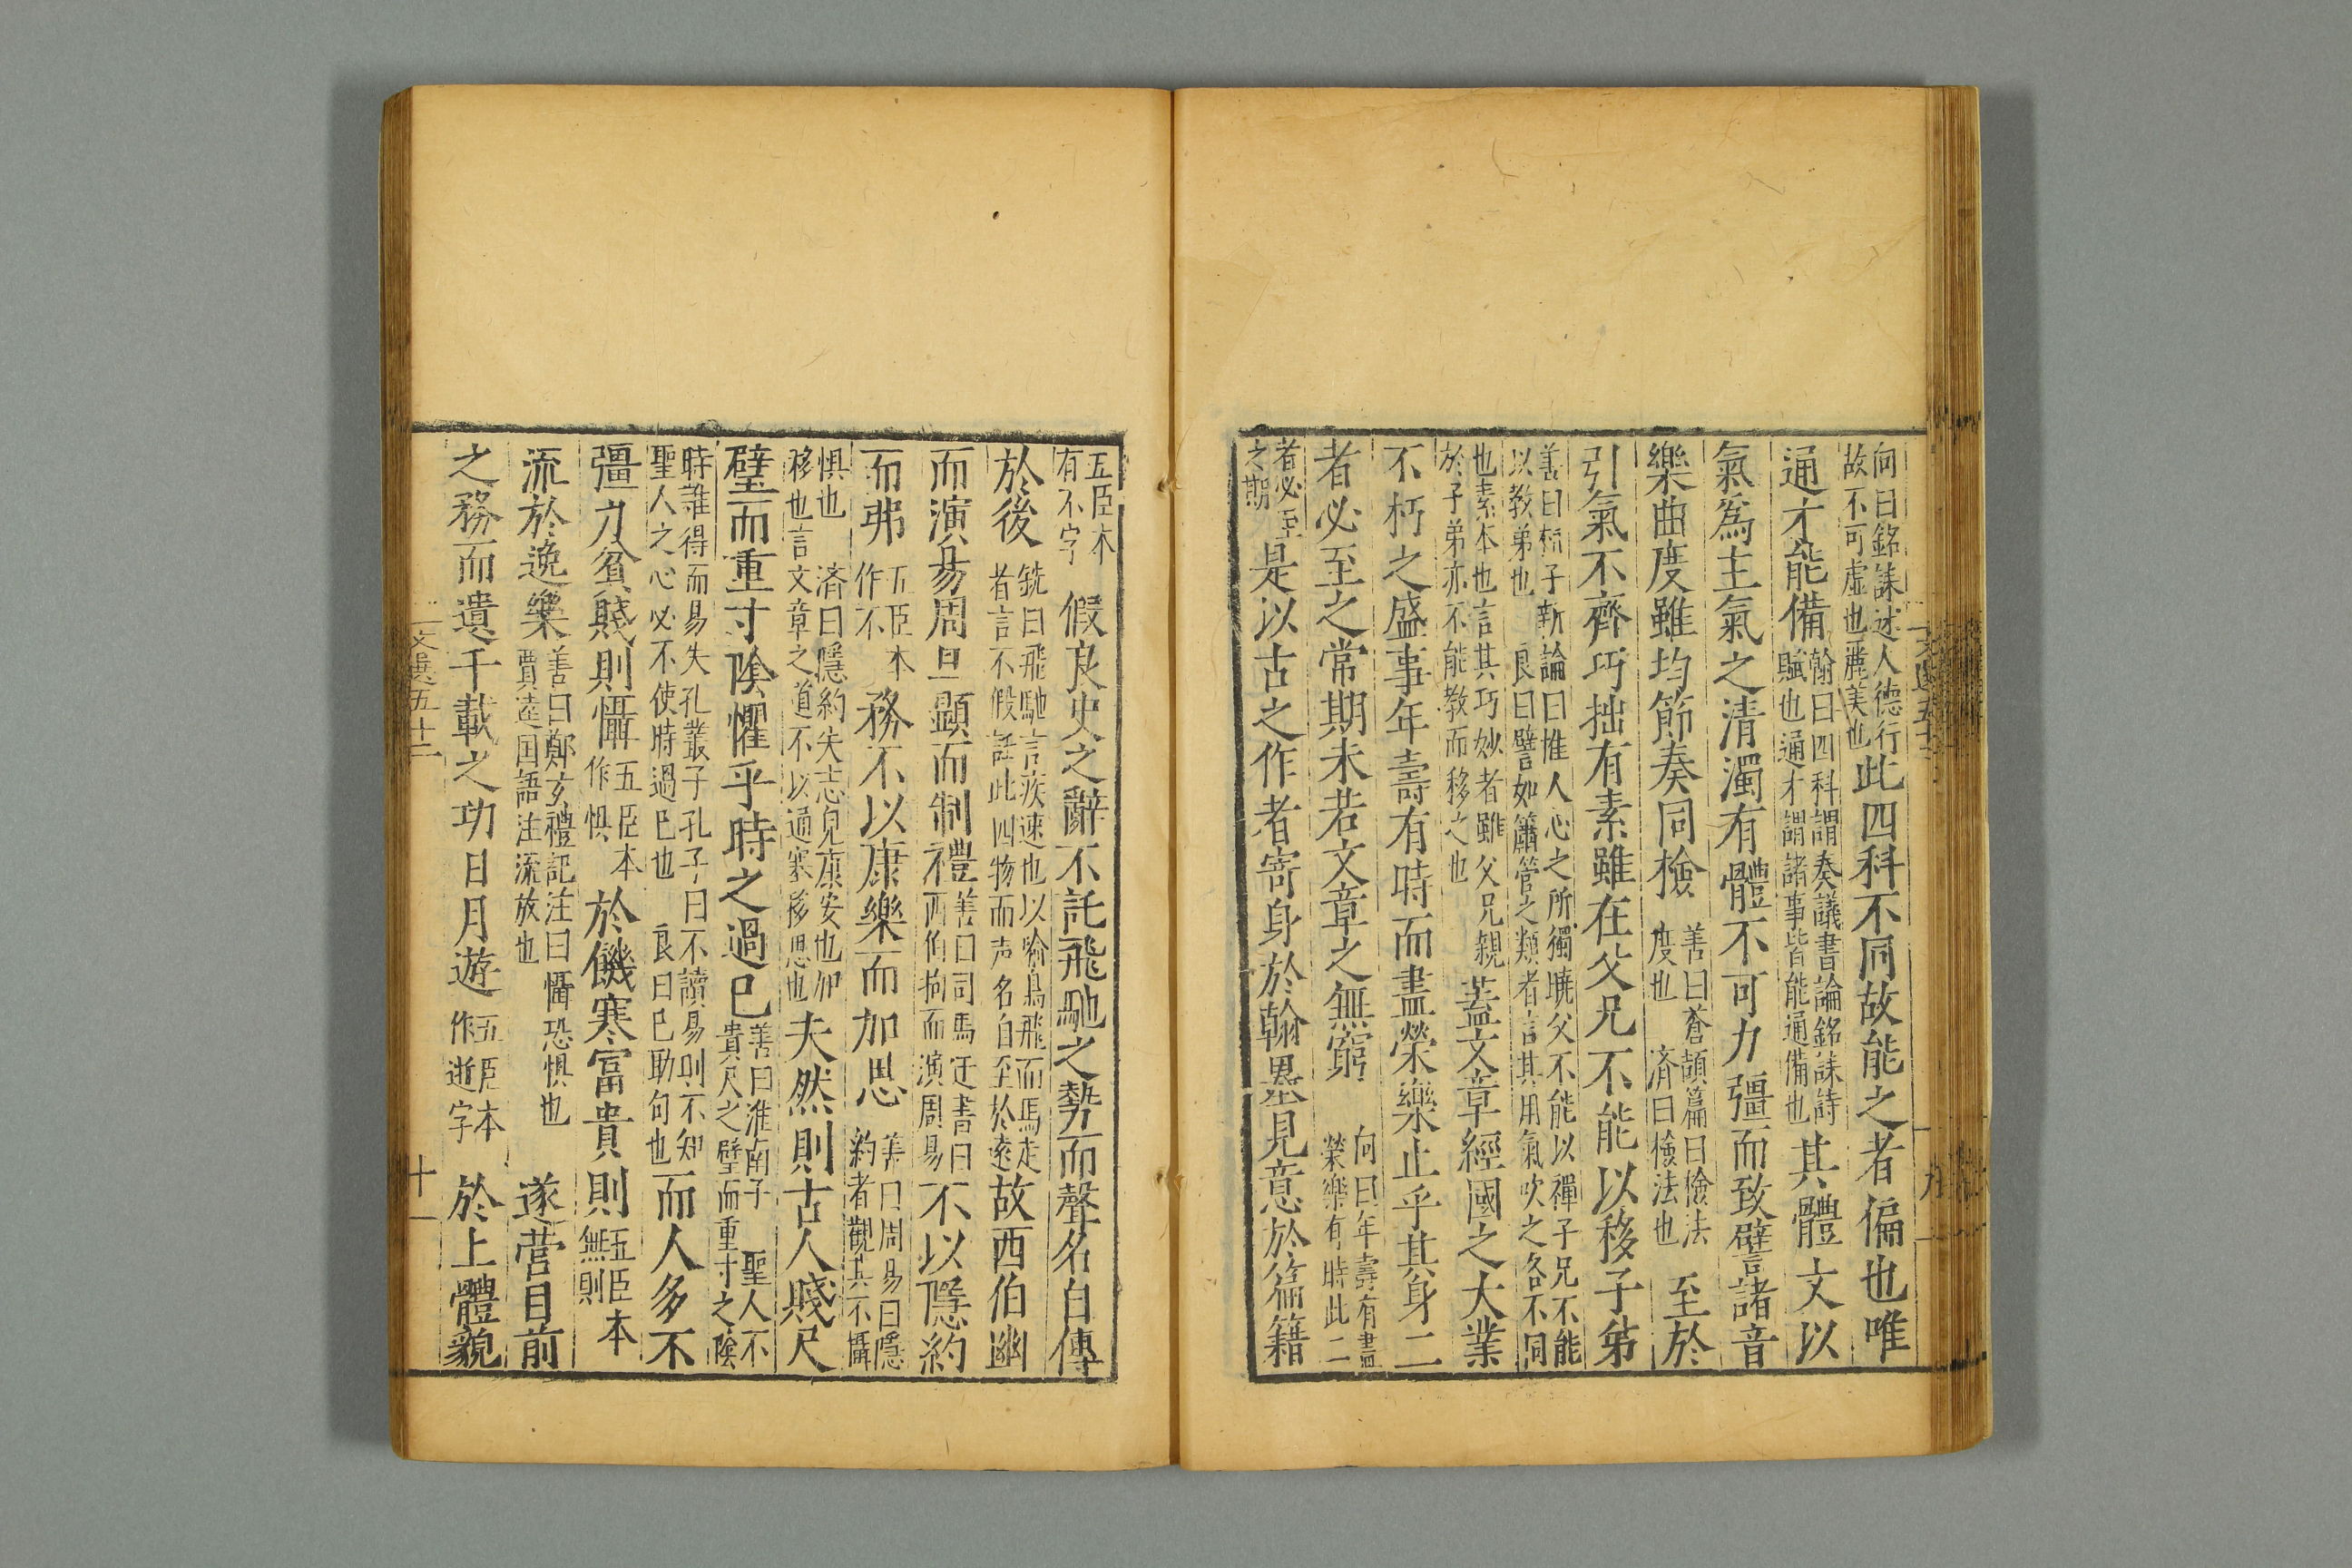 向曰銘誄述人德行
故不可虛也麗美也
此四科不同故能之者偏也唯
通才能備
翰曰四科謂奏議書論銘誄詩
賦也通才謂諸事皆能通備也
其體文以
氣爲主氣之清濁有體不可力彊而致譬諸音
樂曲度雖均節奏同檢
善曰蒼頡篇曰檢法
度也 済曰檢法也
至於
引氣不齊巧拙有素雖在父兄不能以移子弟
善曰桓子新論曰惟人心之所獨曉父不能以禪子兄不能
以教弟也 良曰譬如簫管之類者言其用氣吹之各不同
也素本也言其巧妙者雖父兄親
於子弟亦不能教而移之也
蓋文章經國之大業
不朽之盛事年壽有時而盡榮樂止乎其身二
者必至之常期未若文章之無窮
向曰年壽有盡
榮樂有時此二
者必至
之期
是以古之作者寄身於翰墨見意於篇籍
五臣本
有不字
假良史之辭不託飛馳之勢而聲名自傳
於後
銑曰飛馳言疾速也以喻鳥飛而馬走
者言不假託此四物而声名自至於遠
故西伯幽
而演易周旦顯而制禮
善曰司馬迁書曰
西伯拘而演周易
不以隱約
而弗
五臣本
作不
務不以康樂而加思
善曰周易曰隱
約者觀其不懾
懼也 済曰隱約失志皃康安也加
移也言文章之道不以通塞移思也
夫然則古人賤尺
璧而重寸陰懼乎時之過已
善曰淮南子 聖人不
貴尺之璧而重寸之陰
時難得而易失孔叢子孔子曰不讀易則不知
聖人之心必不使時過已也 良曰已助句也
而人多不
彊力貧賤則懾
五臣本
作惧
於饑寒富貴則
五臣本
無則
流於逸樂
善曰鄭玄禮記注曰懾恐惧也
賈逵国語注流放也
遂營目前
之務而遺千載之功日月遊
五臣本
作逝字
於上體貌
文選五十二
十一